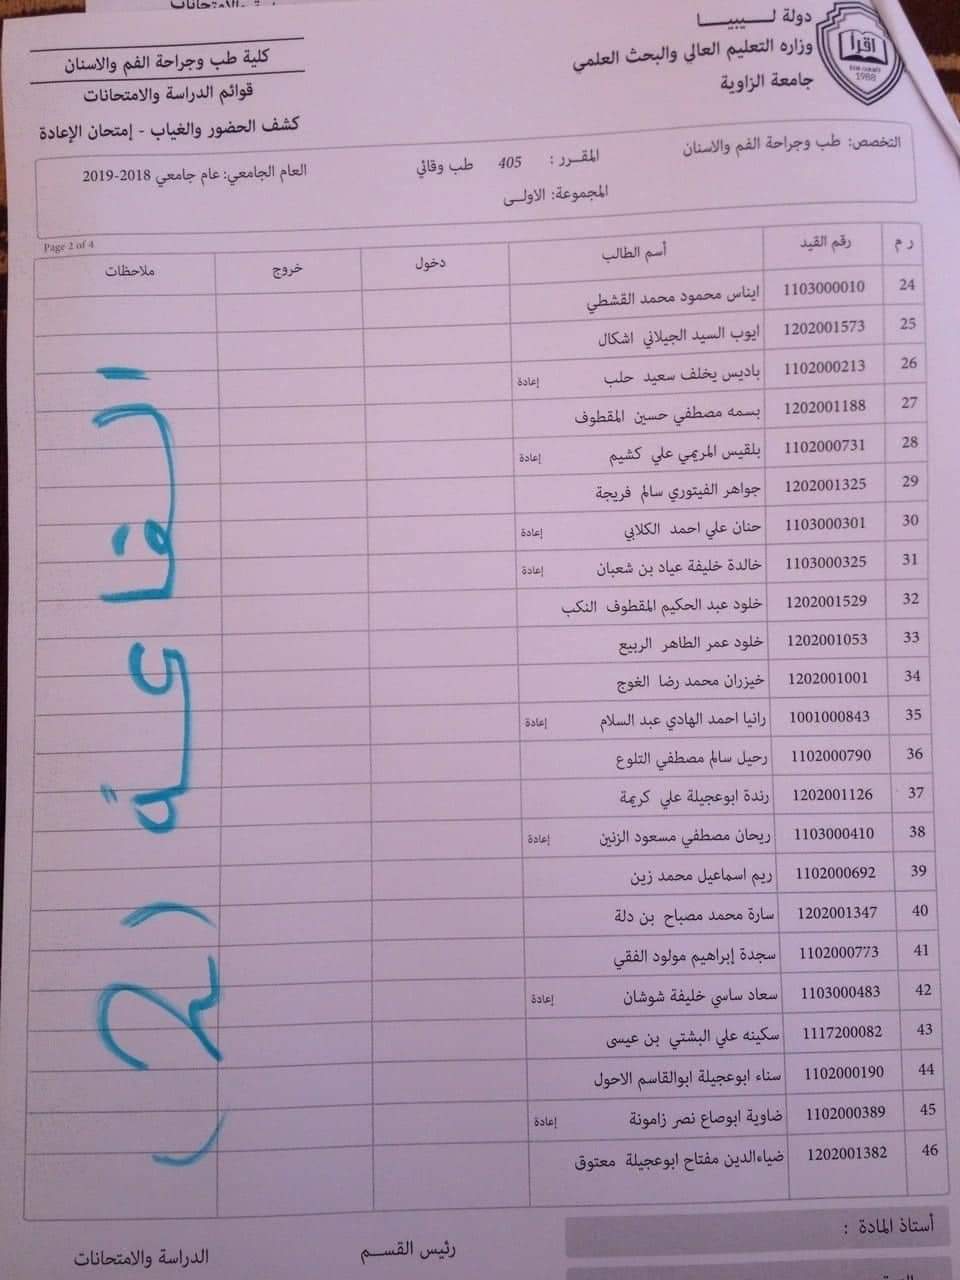 دولة لـــيبيـــا
وزاره التعليم العالي والبحث العلمي
جامعة الزاوية
اقرأ
1988
كلية طب وجراحة الفم والاسنان
قوائم الدراسة والامتحانات
كشف الحضور والغياب - إمتحان الإعادة
التخصص: طب وجراحة الفم والاسنان المقــرر : 405 طب وقائي العام الجامعي: عام جامعي 2018-2019
المجموعة: الاولــى
Page 2 of 4
ر م رقم القيد أسم الطالب دخول خروج ملاحظات
24 1103000010 ايناس محمود محمد القشطي
25 1202001573 ايوب السيد الجيلاني اشكال
26 1102000213 باديس يخلف سعيد حلب إعادة
27 1202001188 بسمه مصطفي حسين المقطوف
28 1102000731 بلقيس المريمي علي كشيم إعادة
29 1202001325 جواهر الفيتوري سالم فريجة
30 1103000301 حنان علي احمد الكلابي إعادة
31 1103000325 خالدة خليفة عياد بن شعبان إعادة
32 1202001529 خلود عبد الحكيم المقطوف النكب
33 1202001053 خلود عمر الطاهر الربيع
34 1202001001 خيزران محمد رضا الغوج
35 1001000843 رانيا احمد الهادي عبد السلام إعادة
36 1102000790 رحيل سالم مصطفي التلوع
37 1202001126 رندة ابوعجيلة علي كريمة
38 1103000410 ريحان مصطفي مسعود الزنين إعادة
39 1102000692 ريم اسماعيل محمد زين
40 1202001347 سارة محمد مصباح بن دلة
41 1102000773 سجدة إبراهيم مولود الفقي
42 1103000483 سعاد ساسي خليفة شوشان إعادة
43 1117200082 سكينه علي البشتي بن عيسى
44 1102000190 سناء ابوعجيلة ابوالقاسم الاحول
45 1102000389 ضاوية ابوصاع نصر زامونة إعادة
46 1202001382 ضياءالدين مفتاح ابوعجيلة معتوق
القاعة (2)
أستاذ المادة :
رئيس القســم
الدراسة والامتحانات